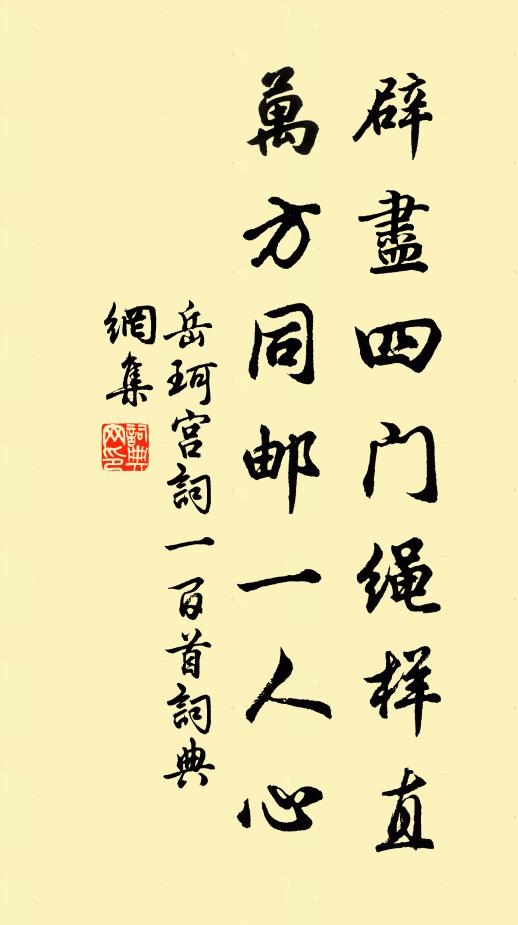 辟盡四门绳样直
萬方同邮一人心
岳珂宫詞一百首詞典
網集
詞典
网印